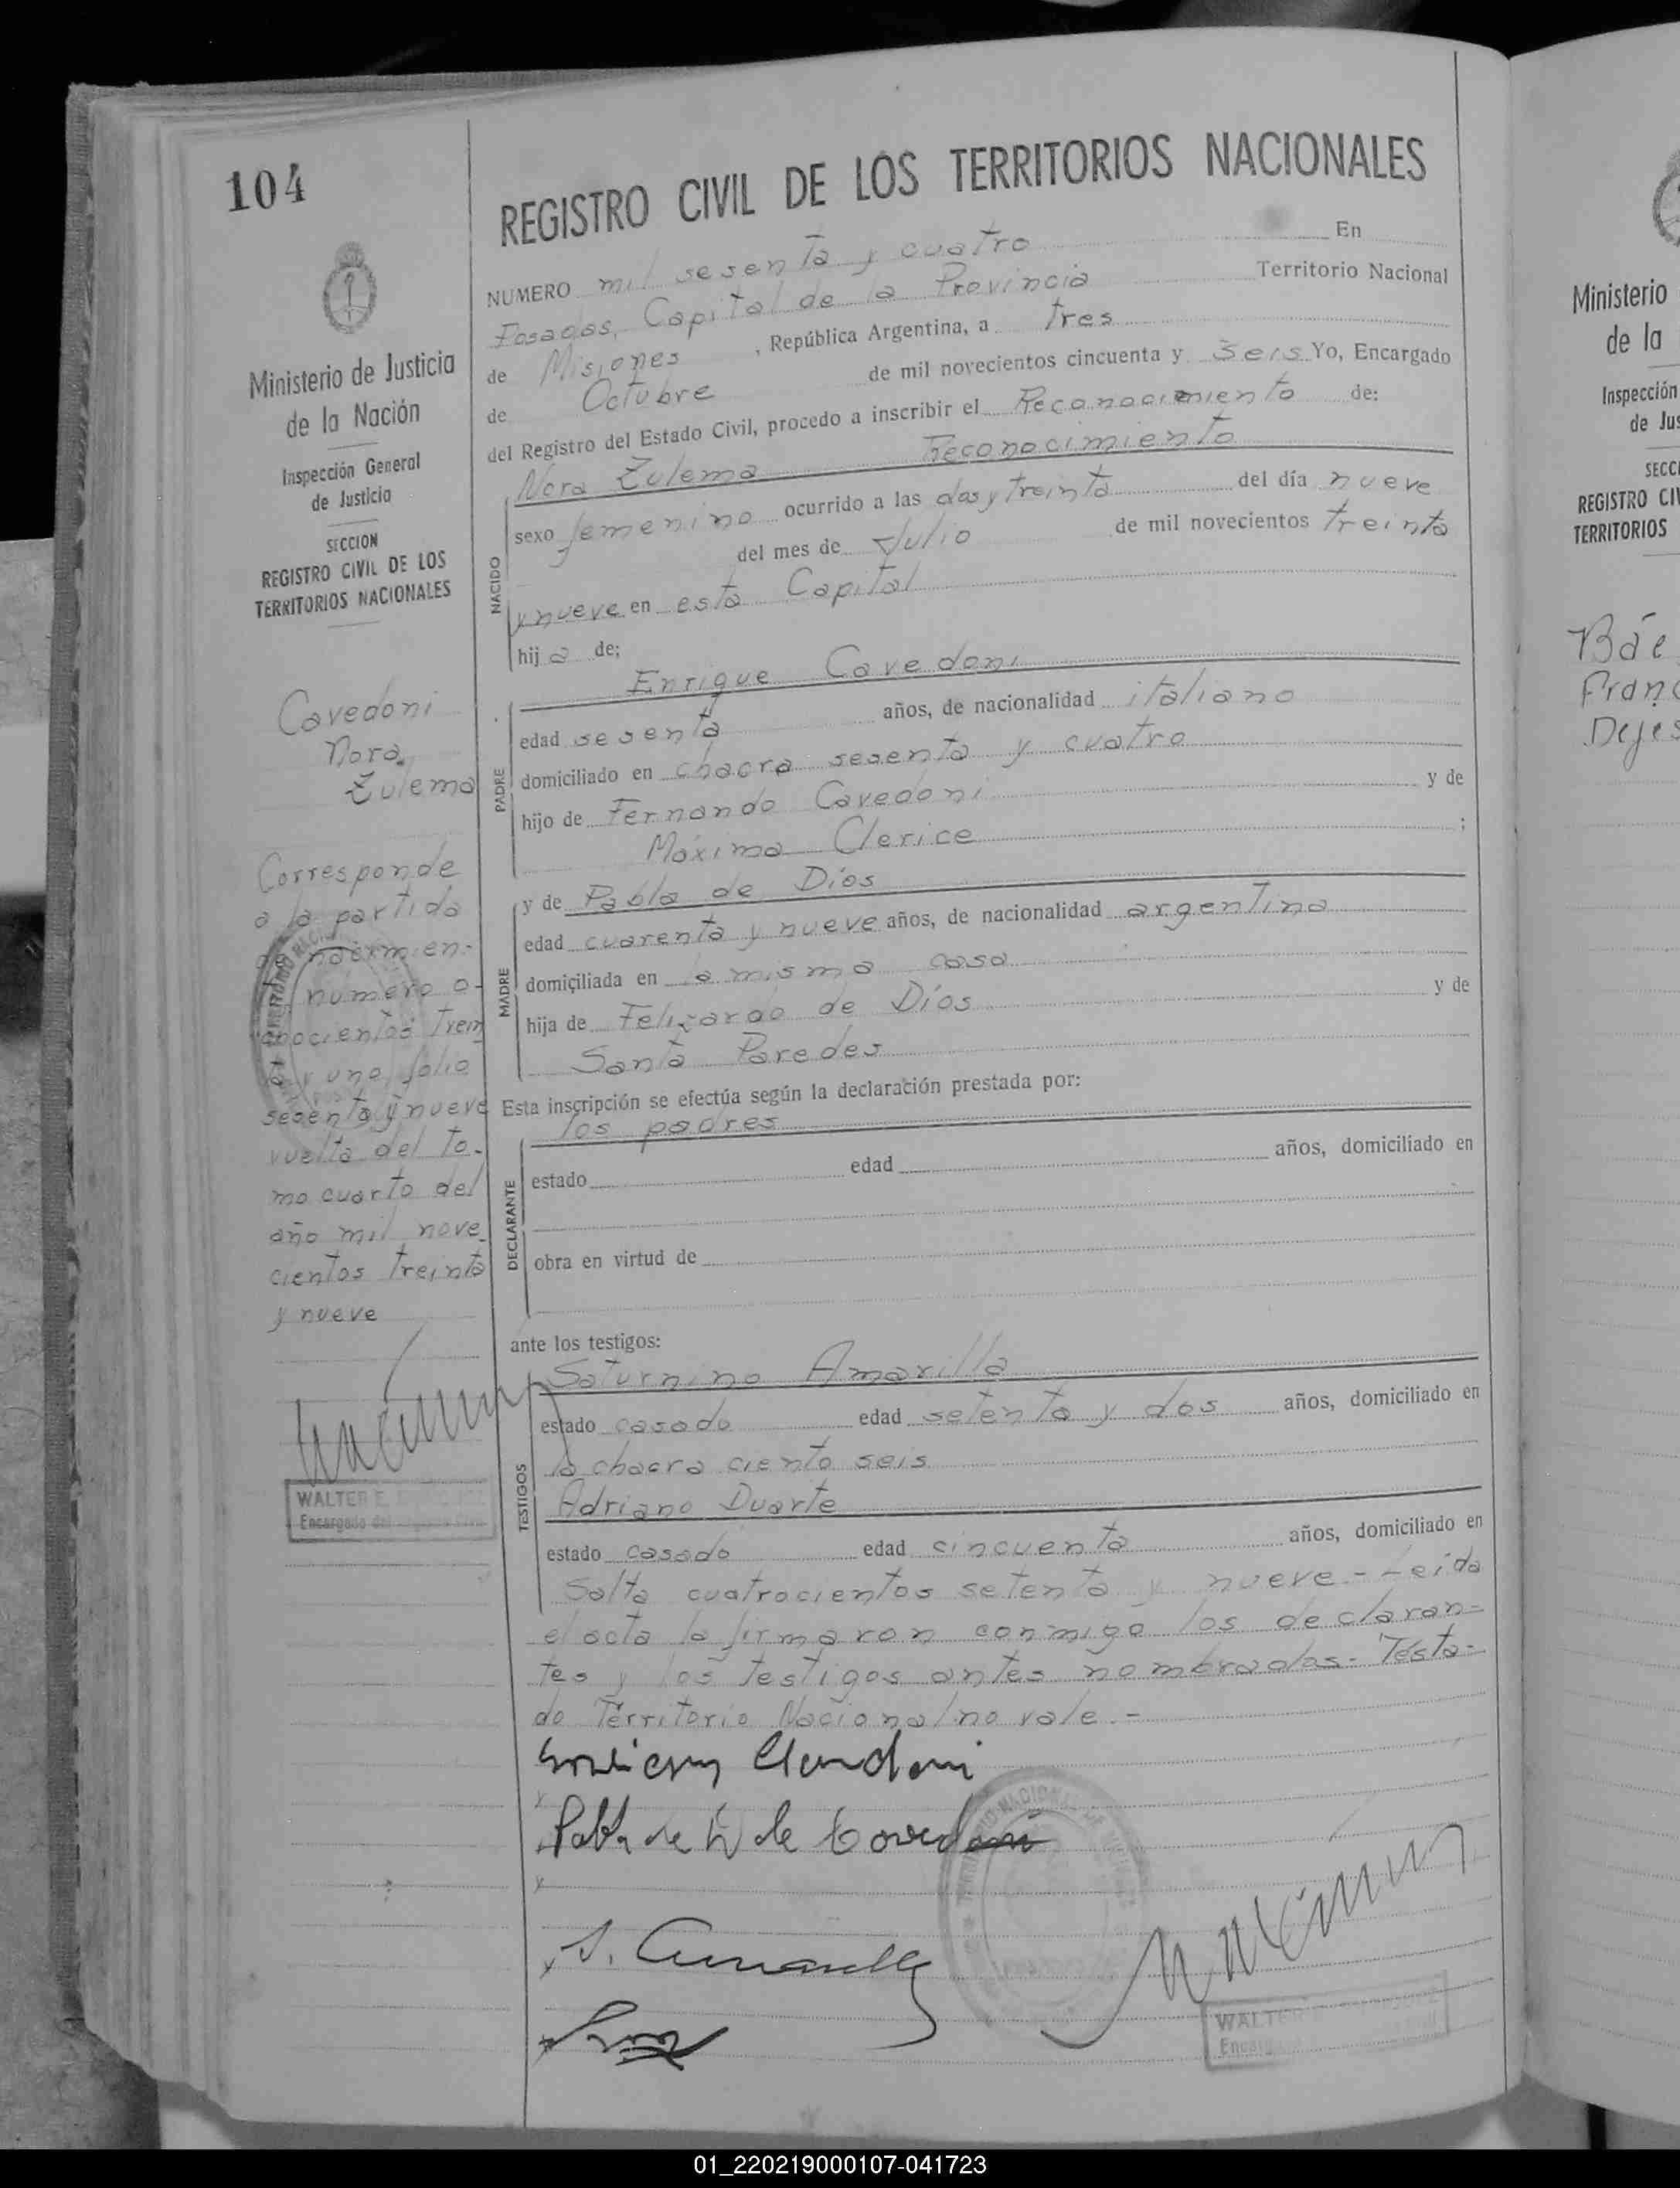 104
REGISTRO CIVIL DE LOS TERRITORIOS NACIONALES
NUMERO mil sesenta y cuatro En
Posadas, Capital de la Provincia Territorio Nacional
de Misiones , República Argentina, a tres
de Octubre de mil novecientos cincuenta y seis Yo, Encargado
del Registro del Estado Civil, procedo a inscribir el Reconocimiento de:
Nora Zulema Reconocimiento
sexo femenino ocurrido a las dos y treinta del día nueve
del mes de Julio de mil novecientos treinta
y nueve en esta Capital
hija de;
NACIDO
Enrique Cavedoni
edad sesenta años, de nacionalidad italiano
domiciliado en chacra sesenta y cuatro
hijo de Fernando Cavedoni y de
Máxima Clerice ;
PADRE
y de Pabla de Dios
edad cuarenta y nueve años, de nacionalidad argentina
domiciliada en la misma casa
hija de Felizardo de Dios y de
Santa Paredes
MADRE
Esta inscripción se efectúa según la declaración prestada por:
los padres
estado edad años, domiciliado en
obra en virtud de
DECLARANTE
ante los testigos:
Saturnino Amarilla
estado casado edad setenta y dos años, domiciliado en
la chacra ciento seis
Adriano Duarte
estado casado edad cincuenta años, domiciliado en
Salta cuatrocientos setenta y nueve.- Leida
TESTIGOS
el acta la firmaron conmigo los declaran-
tes y los testigos antes nombrados- Testa-
do Territorio Nacional no vale.-
Pabla de D de Cavedoni
S. Amarilla
WALTER
Ministerio de Justicia
de la Nación
Inspección General
de Justicia
SECCION
REGISTRO CIVIL DE LOS
TERRITORIOS NACIONALES
Cavedoni
Nora
Zulema
Corresponde
a la partida
de nacimien-
to numero o-
chocientos trein
ta y uno folio
sesenta y nueve
vuelta del to-
mo cuarto del
año mil nove
cientos treinta
y nueve
WALTER E.
Encargado del Registro Civil
Ministerio
de la
Inspección
de Jus
SECCI
REGISTRO CIV
TERRITORIOS
Báe
Franc
Dejes
01_220219000107-041723